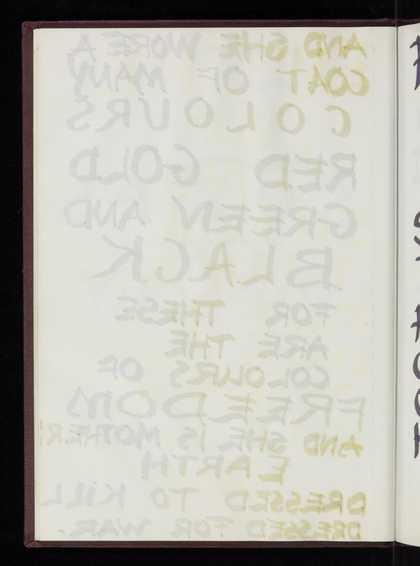 AND SHE WORE A
COAT OF MANY
COLOURS
RED GOLD
GREEN AND
BLACK
FOR THESE
ARE THE
COLOURS OF
FREEDOM
AND SHE IS MOTHER
EARTH
DRESSED TO KILL
DRESSED FOR WAR.